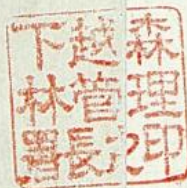 森理印
越管長之
下林署